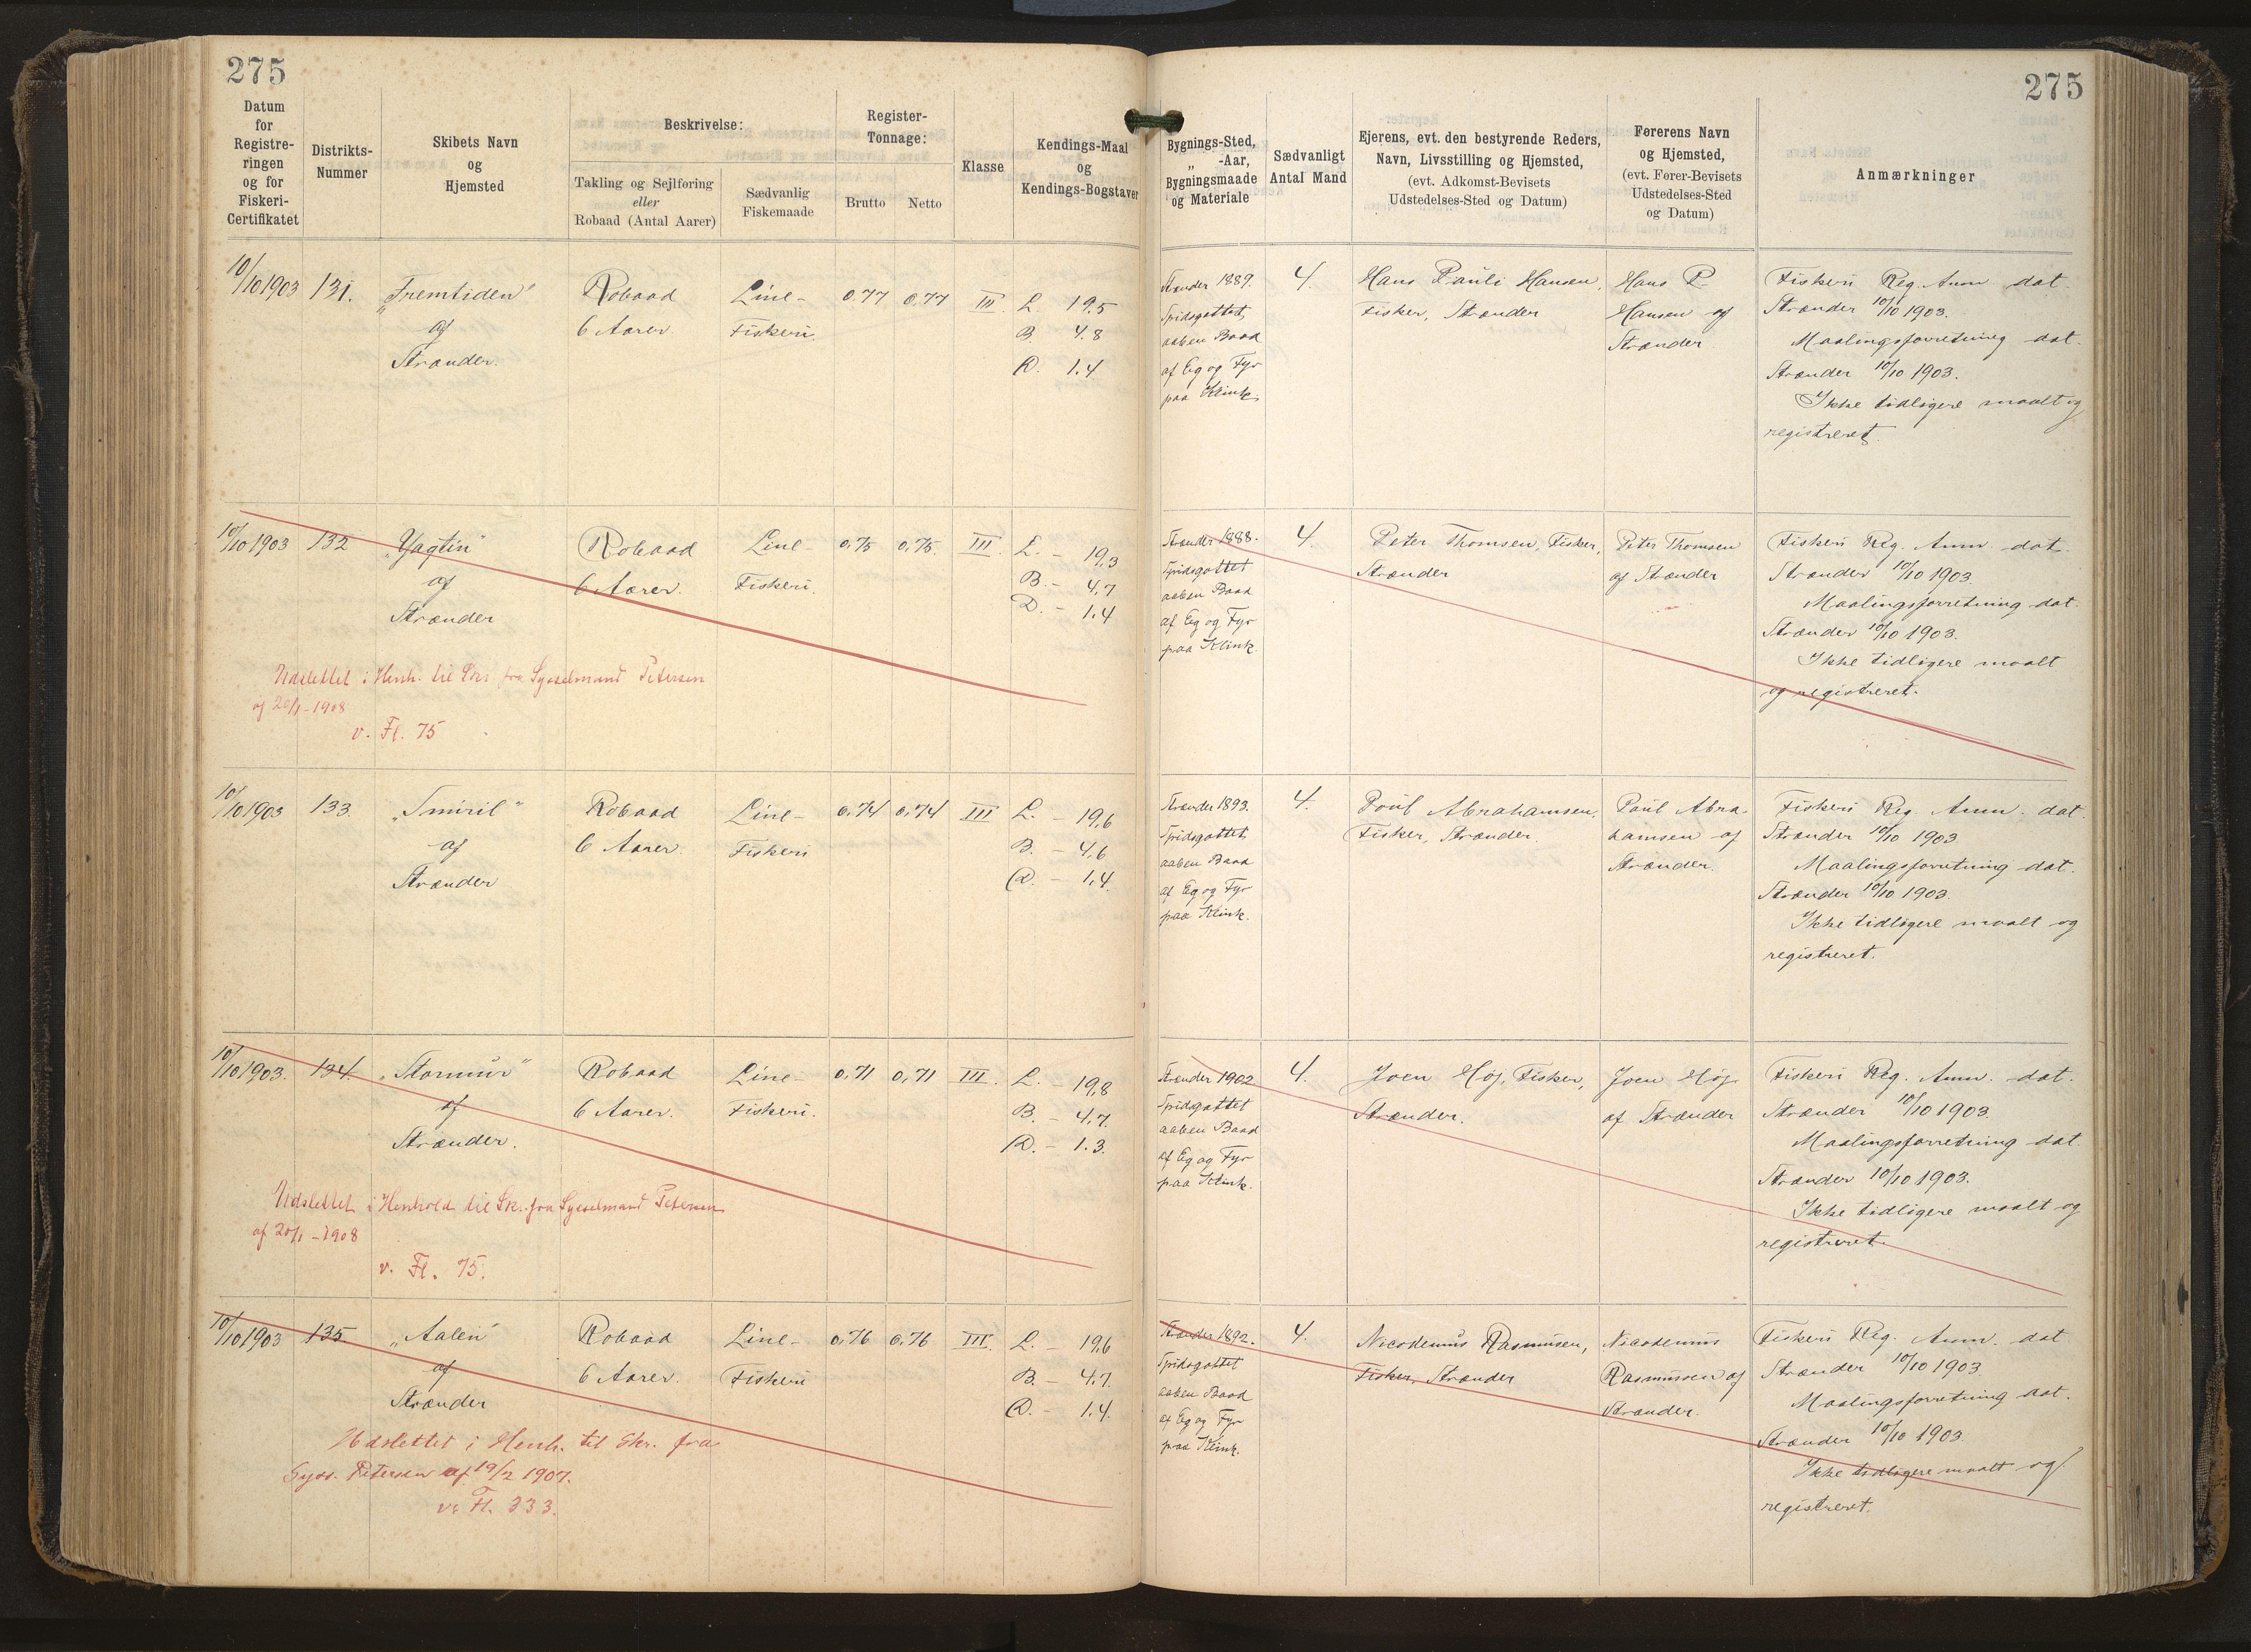 275
275
Datum for Registreringen og for Fiskeri-Certifikatet
Distrikts-Nummer
Skibets Navn og Hjemsted
Beskrivelse:
Takling og Sejlføring eller Robaad (Antal Aarer)
Sædvanlig Fiskemaade
Register-Tonnage:
Brutto
Netto
Klasse
Kendings-Maal og Kendings-Bogstaver
Bygnings-Sted, „ -Aar, Bygningsmaade og Materiale
Sædvanligt Antal Mand
Ejerens, evt. den bestyrende Reders, Navn, Livsstilling og Hjemsted, (evt. Adkomst-Bevisets Udstedelses-Sted og Datum)
Førerens Navn og Hjemsted, (evt. Fører-Bevisets Udstedelses-Sted og Datum)
Anmærkninger
10/10 1903
131.
„Fremtiden"
af
Strænder.
Robaad
6 Aarer.
Line-
Fiskeri.
0,77
0,77
III.
L. 19,5
B. 4.8
D. 1.4
Strænder 1889.
Spidsgattet,
aaben Baad
af Eg og Fyr
paa Klink.
4.
Hans Pauli Hansen,
Fisker, Strænder
Hans P.
Hansen af
Strænder
Fiskeri Reg. Anm. dat.
Strænder 10/10 1903.
Maalingsforretning dat.
Strænder 10/10 1903.
Ikke tidligere maalt og
registreret.
10/10 1903
132
„Yagtin"
af
Strænder
Robaad
6 Aarer.
Line-
Fiskeri.
0,75
0,75.
III.
L. - 19,3
B. - 4,7
D. - 1.4
Strænder 1888.
Spidsgattet
aaben Baad
af Eg og Fyr
paa Klink.
4.
Peter Thomsen, Fisker,
Strænder
Peter Thomsen
af Strænder
Fiskeri Reg. Anm. dat.
Strænder 10/10 1903.
Maalingsforretning dat.
Strænder 10/10 1903.
Ikke tidligere maalt
og registreret.
Udslettet i Henh. til Skr. fra Sysselmand Petersen
af 20/1-1908
v. Fl. 75
10/10 1903
133.
„Smiril"
af
Strænder
Robaad
6 Aarer.
Line-
Fiskeri
0,74
0,74
III
L. - 19,6
B. - 4,6
D. - 1,4.
Strænder 1893.
Spidsgattet,
aaben Baad
af Eg og Fyr
paa Klink.
4.
Poul Abrahamsen,
Fisker, Strænder.
Poul Abra-
hamsen af
Strænder.
Fiskeri Reg. Anm. dat.
Strænder 10/10 1903
Maalingsforretning dat.
Strænder 10/10 1903.
Ikke tidligere maalt og
registreret.
10/10 1903.
134.
af
Strænder.
Robaad
6 Aarer.
Line-
Fiskeri.
0,71
0,71
III.
L. - 19,8
B. - 4,7.
D. - 1.3.
Strænder 1902
Spidsgattet
aaben Baad
af Eg og Fyr
paa Klink.
4.
Joen Høj, Fisker,
Strænder.
Joen Høj
af Strænder
Fiskeri Reg. Anm. dat.
Strænder 10/10 1903.
Maalingsforretning dat.
Strænder 10/10 1903.
Ikke tidligere maalt og
registreret.
Udslettet i Henhold til Skr. fra Sysselmand Petersen
af 20/1-1908
v. Fl. 75.
10/10 1903
135
„Aalen"
af
Strænder
Robaad
6 Aarer.
Line-
Fiskeri
0,76
0,76
III.
L. - 19,6
B. - 4,7.
D. - 1,4.
Strænder 1892.
Spidsgattet
aaben Baad
af Eg og Fyr
paa Klink.
4.
Nicodemus Rasmusen,
Fisker, Strænder
Nicodemus
Rasmussen af
Strænder.
Fiskeri Reg. Anm. dat
Strænder 10/10 1903.
Maalingsforretning dat.
Strænder 10/10 1903.
Ikke tidligere maalt og
registreret.
Udslettet i Henh. til Skr. fra
Syss. Petersen af 19/2 1907.
v. Fl. 333.